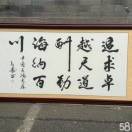 追求卓
越天道
酬勤
海纳百
川
58